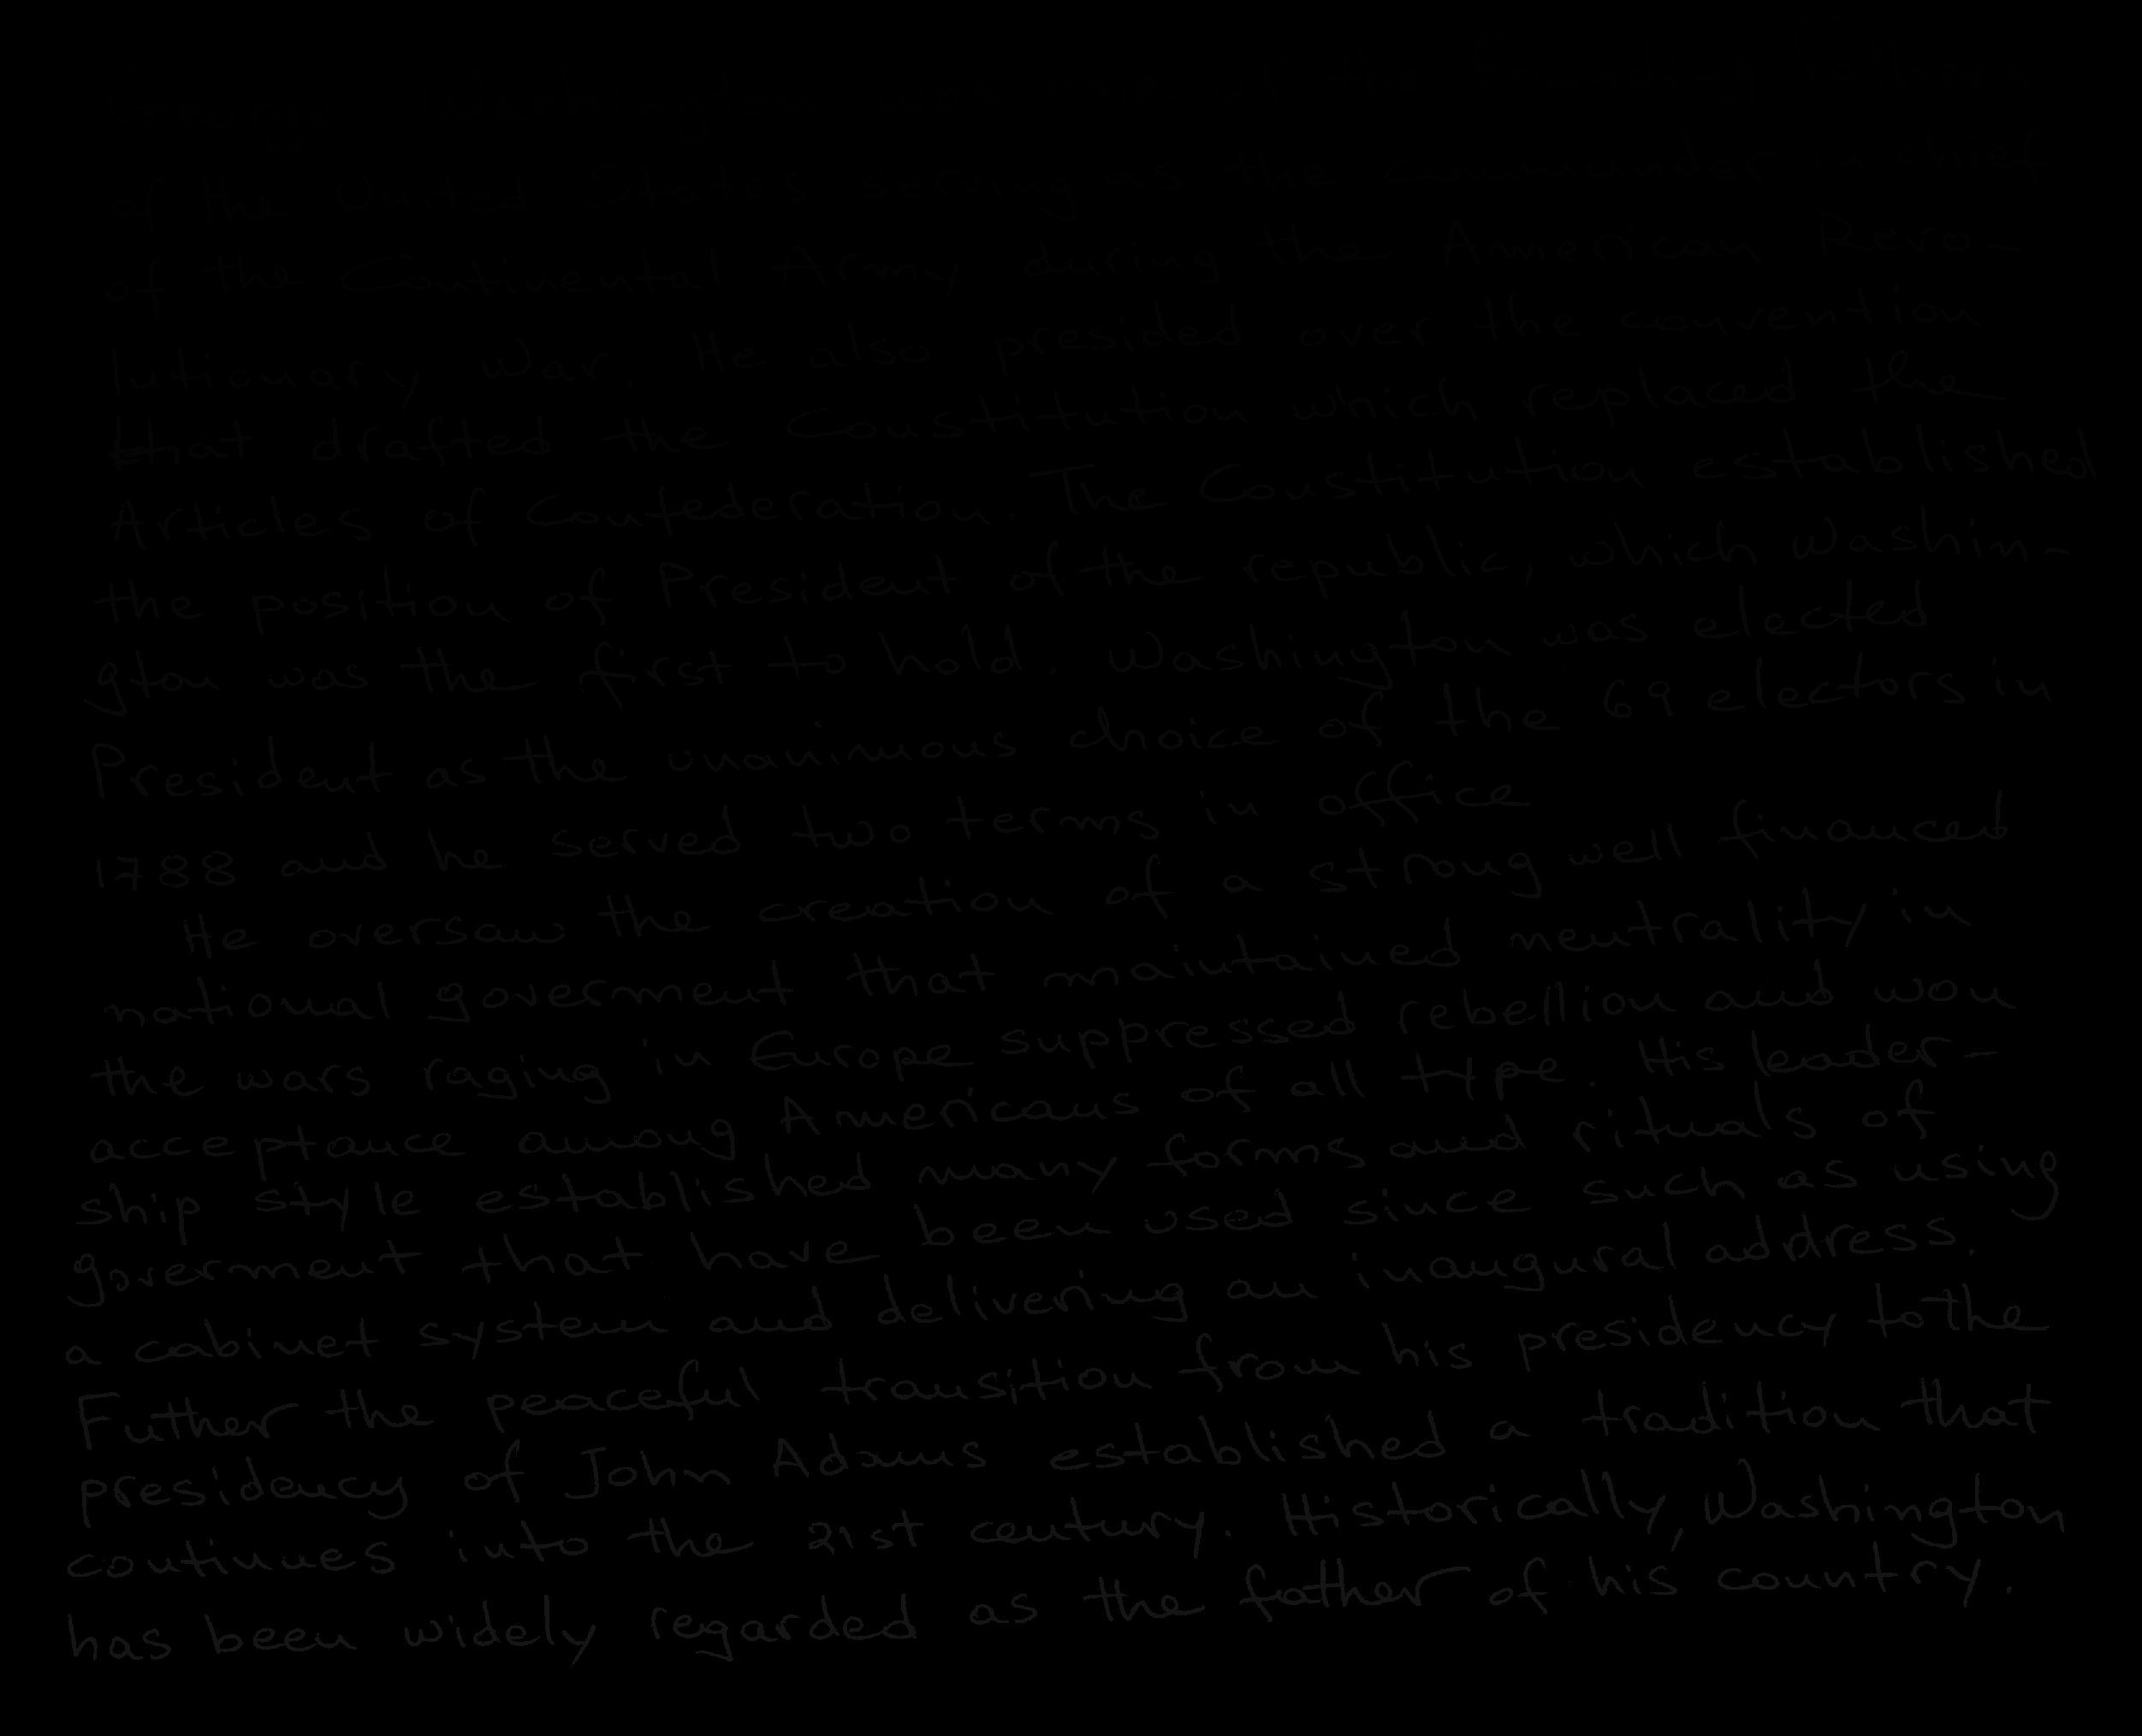 of the United States serving as the commander in chief
of the Continental Army during the American Revo-
lutionary War. He also presided over the convention
that drafted the Constitution which replaced the
Articles of Confederation. The Constitution established
the position of President of the republic, which Washin-
gton was the first to hold. Washington was elected
President as the unanimous choice of the 69 electors in
1788 and he served two terms in office
He oversaw the creation of a strong well financed
national goverment that maintained neutrality in
the wars raging in Europe suppressed rebellion and won
acceptance among Americans of all type. His leader-
ship style established many forms and rituals of
goverment that have been used since such as using
a cabinet system and delivering an inaugural address.
Futher the peaceful transition from his presidency to the
presidency of John Adams established a tradition that
continues into the 21st century. Historically, Washington
has been widely regarded as the father of his country.